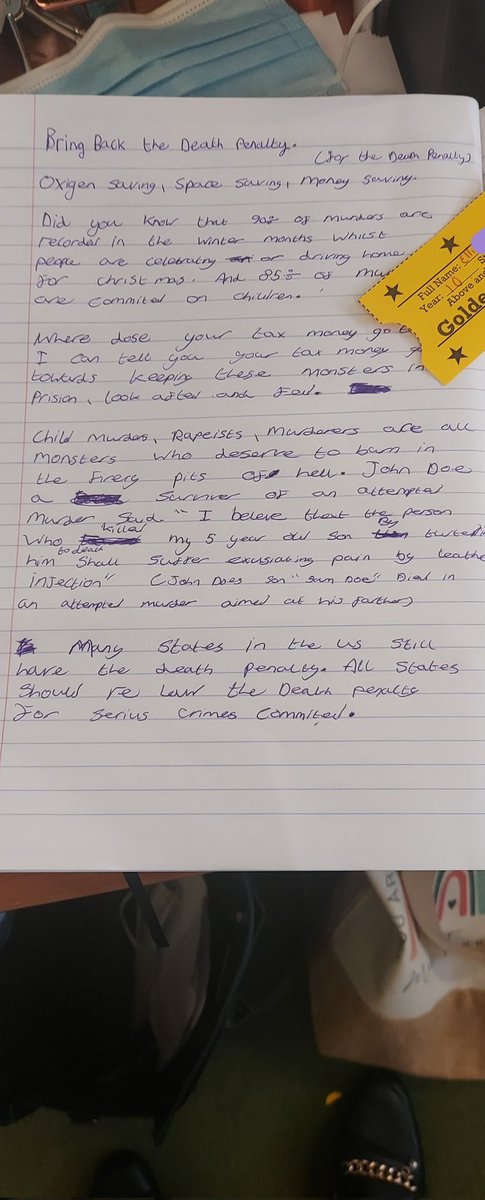 Bring Back the Death Penalty.
(for the Death Penalty)
Oxigen saving, Space Saving, Money Saving.
Did you know that 90% of murders are
recorder in the winter months whilst
people are celebrating or driving home
for christmas. And 85% of
are commited on children.
Where dose your tax money go
I can tell you your tax money
towards keeping these monsters in
Prision, look after and feed.
Child murders, Rapeists, Murderers are all
monsters who deserve to burn in
the firery pits of hell. John Doe
a Surviver of an attempted
murder Said. "I beleve that the person
who killed my 5 year old Son By
him to death Shall Suffer exusiating pain by leathe
injection" (John Does Son "Sam Doe" Died in
an attempted murder aimed at his farther)
Many States in the US Still
have the death penalty. All States
Should re law the Death penalty
for serius crimes commited.
Full Name:
Year: 10
Above and
Golde